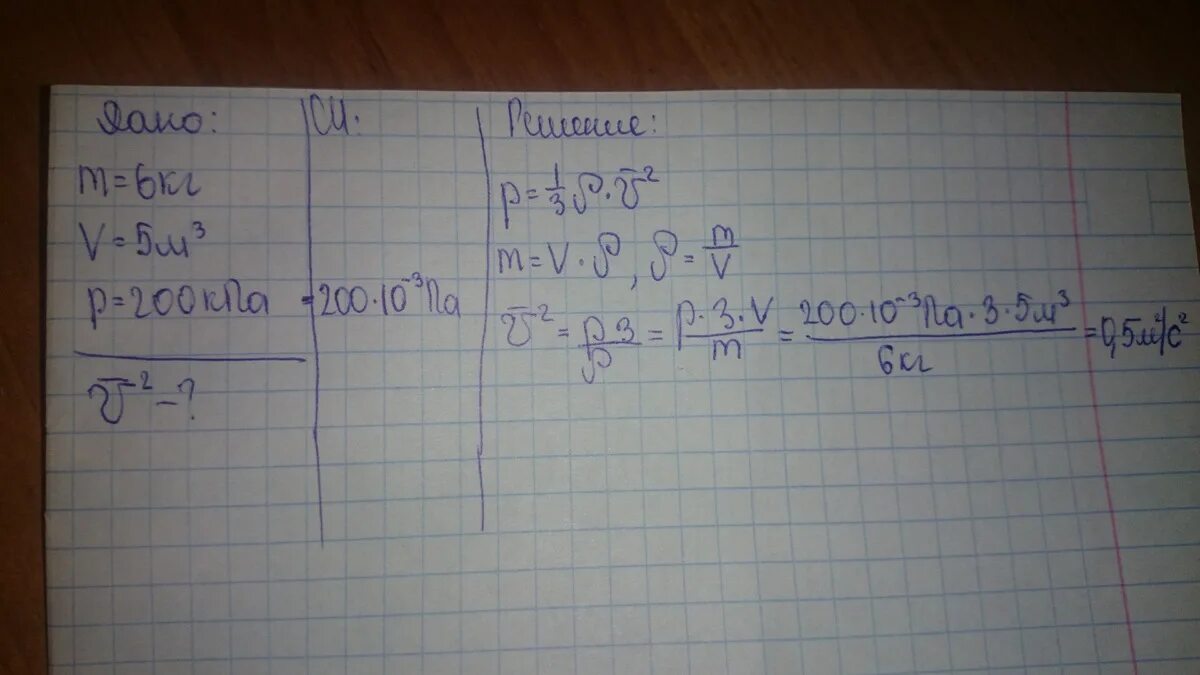 Дано:
m=6кг
V=5м³
p=200кПа
v̄²-?
СИ:
=200·10⁻³Па
Решение:
p=1/3ρ·v̄²
m=V·ρ, ρ=m/V
v̄²=p3/ρ=p·3·V/m=200·10⁻³Па·3·5м³/6кг=0,5м²/с²